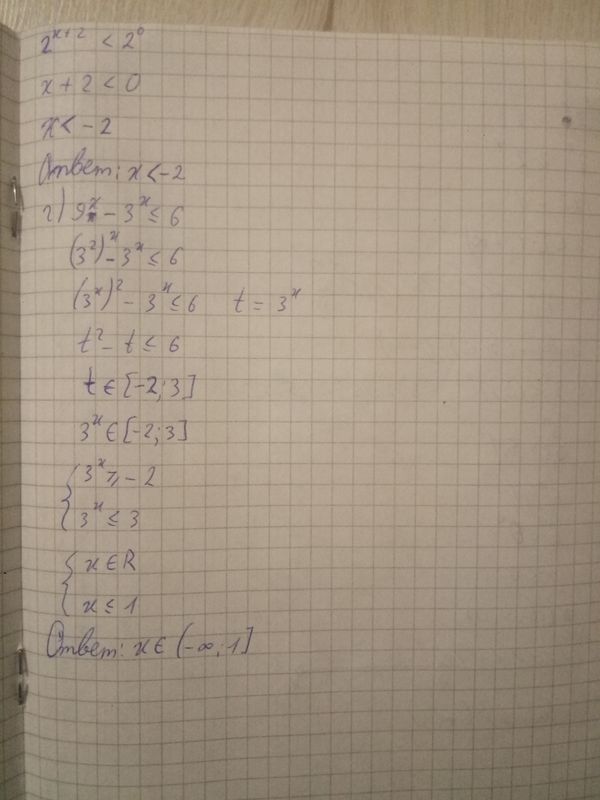 2^{x+2} < 2^0
x + 2 < 0
x < -2
Ответ: x < -2
г) 9^x - 3^x ≤ 6
(3^2)^x - 3^x ≤ 6
(3^x)^2 - 3^x ≤ 6 t = 3^x
t^2 - t ≤ 6
t ∈ [-2; 3]
3^x ∈ [-2; 3]
{ 3^x ≥ -2
3^x ≤ 3
{ x ∈ R
x ≤ 1
Ответ: x ∈ (-∞; 1]